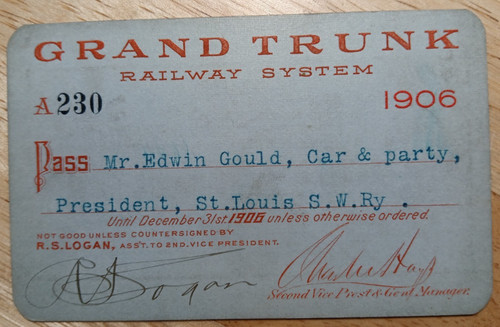 GRAND TRUNK
RAILWAY SYSTEM
A230 1906
Pass Mr.Edwin Gould, Car & party,
President, St.Louis S.W.Ry .
Until December 31st 1906 unless otherwise ordered.
NOT GOOD UNLESS COUNTERSIGNED BY
R.S.LOGAN, ASS'T. TO 2ND. VICE PRESIDENT.
RS Logan
Chas M Hays
Second Vice Pres't & Gen'l Manager.